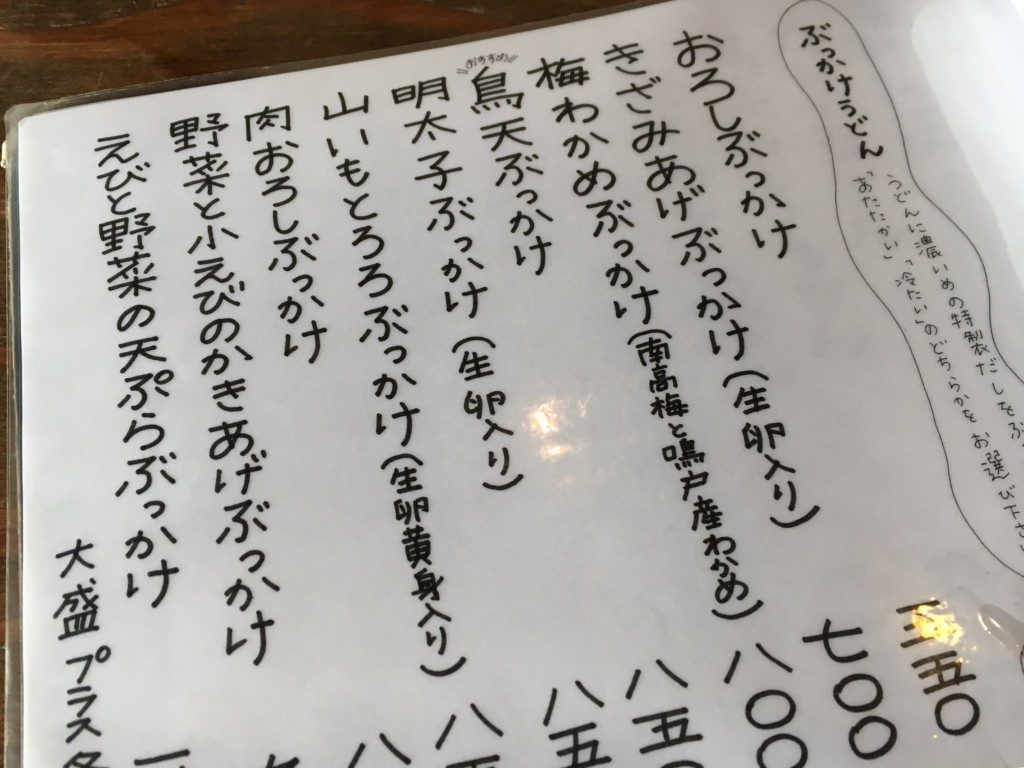 ぶっかけうどん
うどんに濃いめの特製だしをぶ
「あたたかい」「冷たい」のどちらかを お選び下さい
おろしぶっかけ 五〇
きざみあげぶっかけ（生卵入り） 七〇〇
梅わかめぶっかけ（南高梅と鳴戸産わかめ） 八〇〇
おすすめ
鳥天ぶっかけ 八五
明太子ぶっかけ（生卵入り） 八五
山いもとろろぶっかけ（生卵黄身入り） 八
肉おろしぶっかけ 八
野菜と小えびのかきあげぶっかけ
えびと野菜の天ぷらぶっかけ 一
大盛 プラス